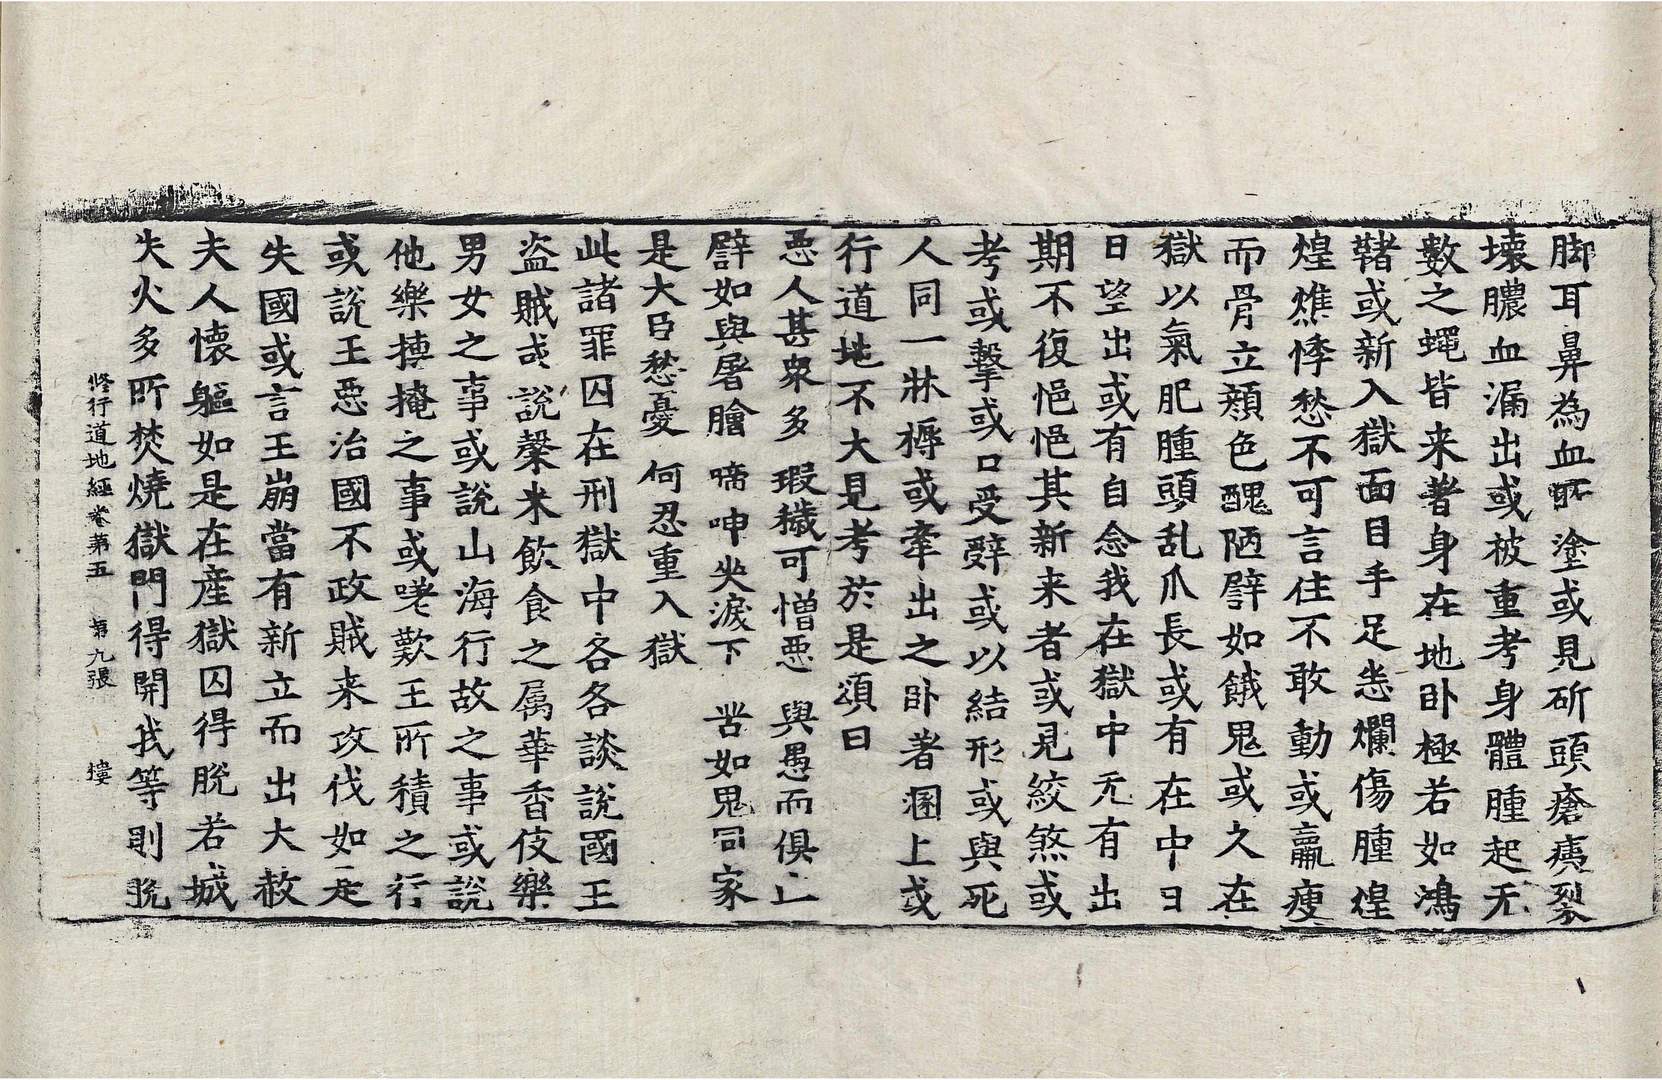 脚耳鼻為血所塗或見斫頭瘡痍裂
壞膿血漏出或被重考身體腫起无
數之蠅皆来著身在地臥極若如鴻
鞯或新入獄面目手足悉爛傷腫煌
煌燋悸愁不可言住不敢動或羸瘦
而骨立顏色醜陋譬如餓鬼或久在
獄以氣肥腫頭乱爪長或有在中日
日望出或有自念我在獄中无有出
期不復悒悒其新来者或見絞煞或
考或擊或口受辤或以結形或與死
人同一牀褥或牽出之卧著溷上或
行道地不大見考於是頌曰
惡人甚衆多　瑕穢可憎惡　與愚而俱亡
譬如與屠膾　啼呻哭淚下　苦如鬼同家
是大臣愁憂　何忍重入獄
此諸罪囚在刑獄中各各談說國王
盗賊或說槃米飲食之属華香伎樂
男女之事或說山海行故之事或說
他樂摶掩之事或嗟歎王所積之行
或說王惡治國不政賊来攻伐如是
失國或言王崩當有新立而出大赦
夫人懐軀如是在産獄囚得脫若城
失火多所焚燒獄門得開我等則脫
修行道地經卷第五　第九張　樓